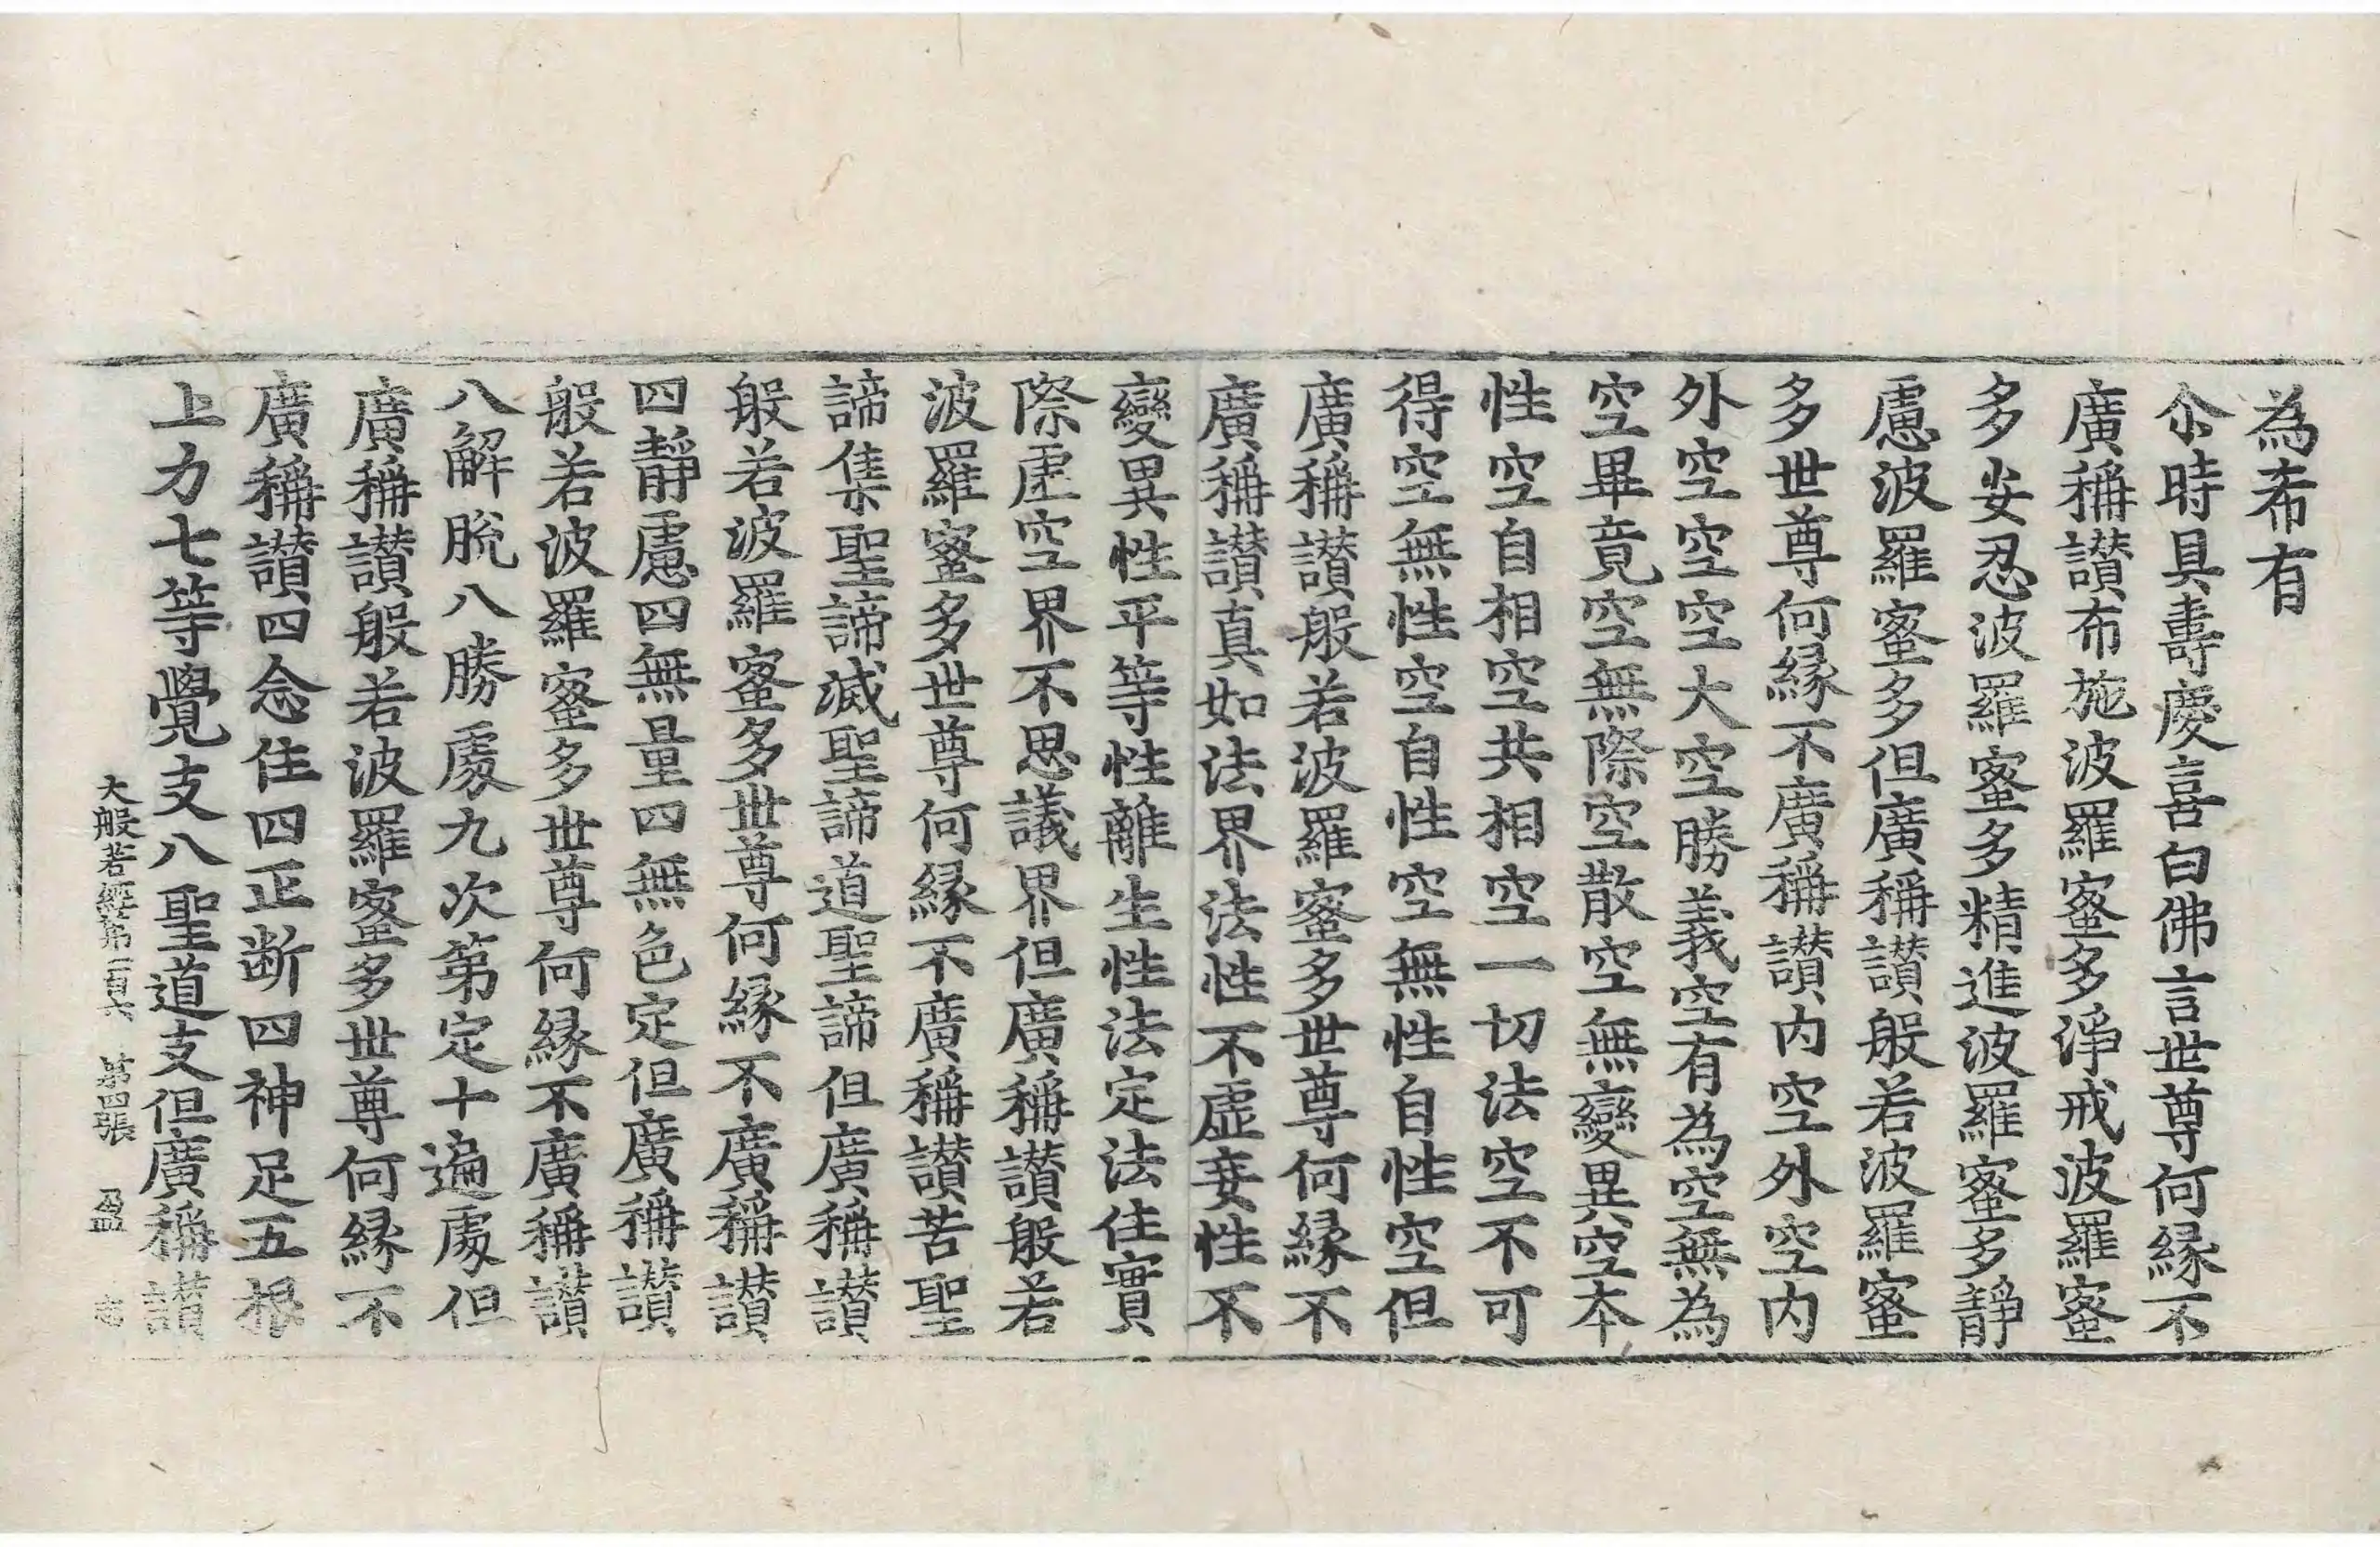 為希有
尒時具壽慶喜白佛言世尊何縁不
廣稱讃布施波羅蜜多淨戒波羅蜜
多安忍波羅蜜多精進波羅蜜多靜
慮波羅蜜多但廣稱讃般若波羅蜜
多世尊何縁不廣稱讃内空外空内
外空空空大空勝義空有為空無為
空畢竟空無際空散空無變異空本
性空自相空共相空一切法空不可
得空無性空自性空無性自性空但
廣稱讃般若波羅蜜多世尊何縁不
廣稱讃真如法界法性不虛妄性不
變異性平等性離生性法定法住實
際虛空界不思議界但廣稱讃般若
波羅蜜多世尊何縁不廣稱讃苦聖
諦集聖諦滅聖諦道聖諦但廣稱讃
般若波羅蜜多世尊何縁不廣稱讃
四靜慮四無量四無色定但廣稱讃
般若波羅蜜多世尊何縁不廣稱讃
八解脫八勝處九次第定十遍處但
廣稱讃般若波羅蜜多世尊何縁不
廣稱讃四念住四正断四神足五根
五力七等覺支八聖道支但廣稱讃
大般若經第一百六 第四張 盈 志